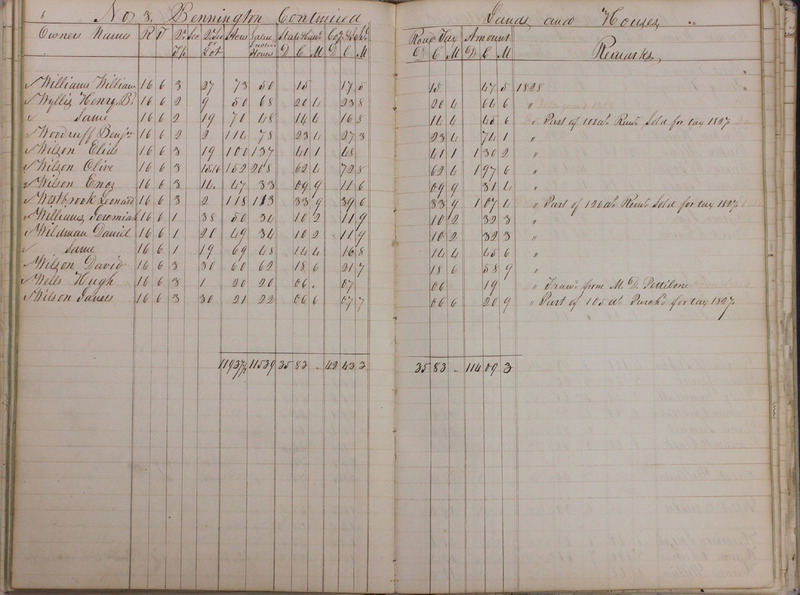 6 No 8, Bennington Continued Lands and Houses
Owners Names R T Acres State & Canl Co. & Road Tax Amount Remarks,
Tp Lot Houses D C M D C M D C M D C M
Williams William 16 6 3 27 73 50 15 17 5 15 47 5 1828
Wyllis Henry B. 16 6 2 9 50 68 20 4 23 8 20 4 64 6 "
Same 16 6 2 19 70 48 14 4 16 8 14 4 45 6 " Part of 102a. Rem. Sold for tax 1827
Woodruff Benjn 16 6 2 2 114 78 23 4 27 3 23 4 74 1 "
Wilson Elias 16 6 3 19 100 137 41 1 48 41 1 1 30 2 "
Wilson Olive 16 6 3 15/16 152 208 62 4 72 8 62 4 1 97 6 "
Wilson Enos 16 6 3 14 47 33 09 9 11 6 09 9 31 4 "
Westbrook Leonard 16 6 3 2 118 113 33 9 39 6 33 9 1 07 4 " Part of 126a. Rem. Sold for tax 1827
Williams Jeremiah 16 6 1 38 50 34 10 2 11 9 10 2 32 3 "
Wildman Daniel 16 6 1 20 49 34 10 2 11 9 10 2 32 3 "
Same 16 6 1 19 69 48 14 4 16 8 14 4 45 6 "
Wilson David 16 6 3 30 60 62 18 6 21 7 18 6 58 9 "
Wells Hugh 16 6 3 1 20 20 06 07 06 19 " Tranr from M. D. Pettibone
Wilson James 16 6 3 30 21 22 06 6 07 7 06 6 20 9 " Part of 105 a. Purchd for tax 1827.
11937½ 11539 35 83 - 42 43 3 35 83 - 114 09 3